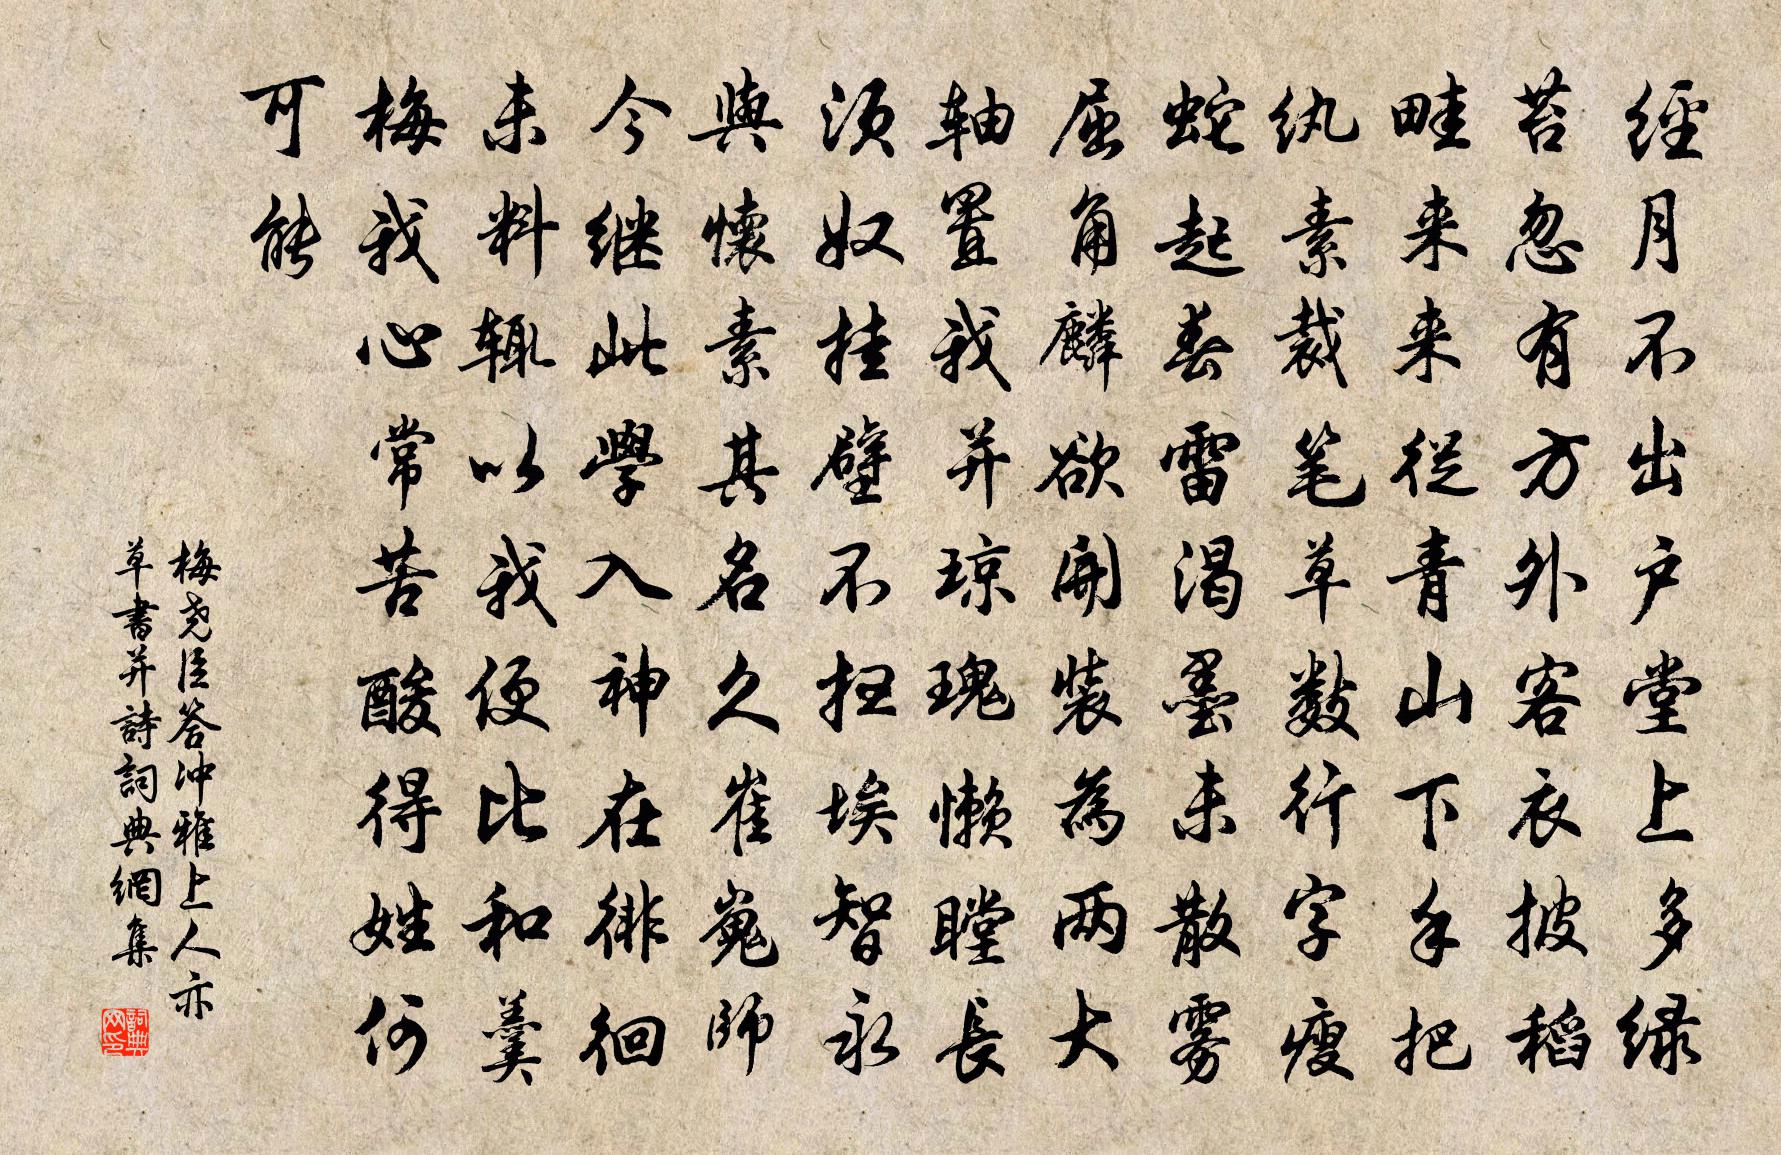 經月不出户堂上多绿
苔忽有方外客衣披稻
畦来来從青山下手把
纨素裁笔草数行字瘦
蛇起春雷渴墨未散雾
屈角麟欲開装為两大
軸置我并琼瑰懒瞠長
须奴挂壁不拄埃智永
與懷素其名久崔嵬師
今继此學入神在徘徊
未料辄以我便比和羹
梅我心常苦酸得姓何
可能
梅尧臣答冲雅上人亦
草書并詩詞典網集
詞典网印